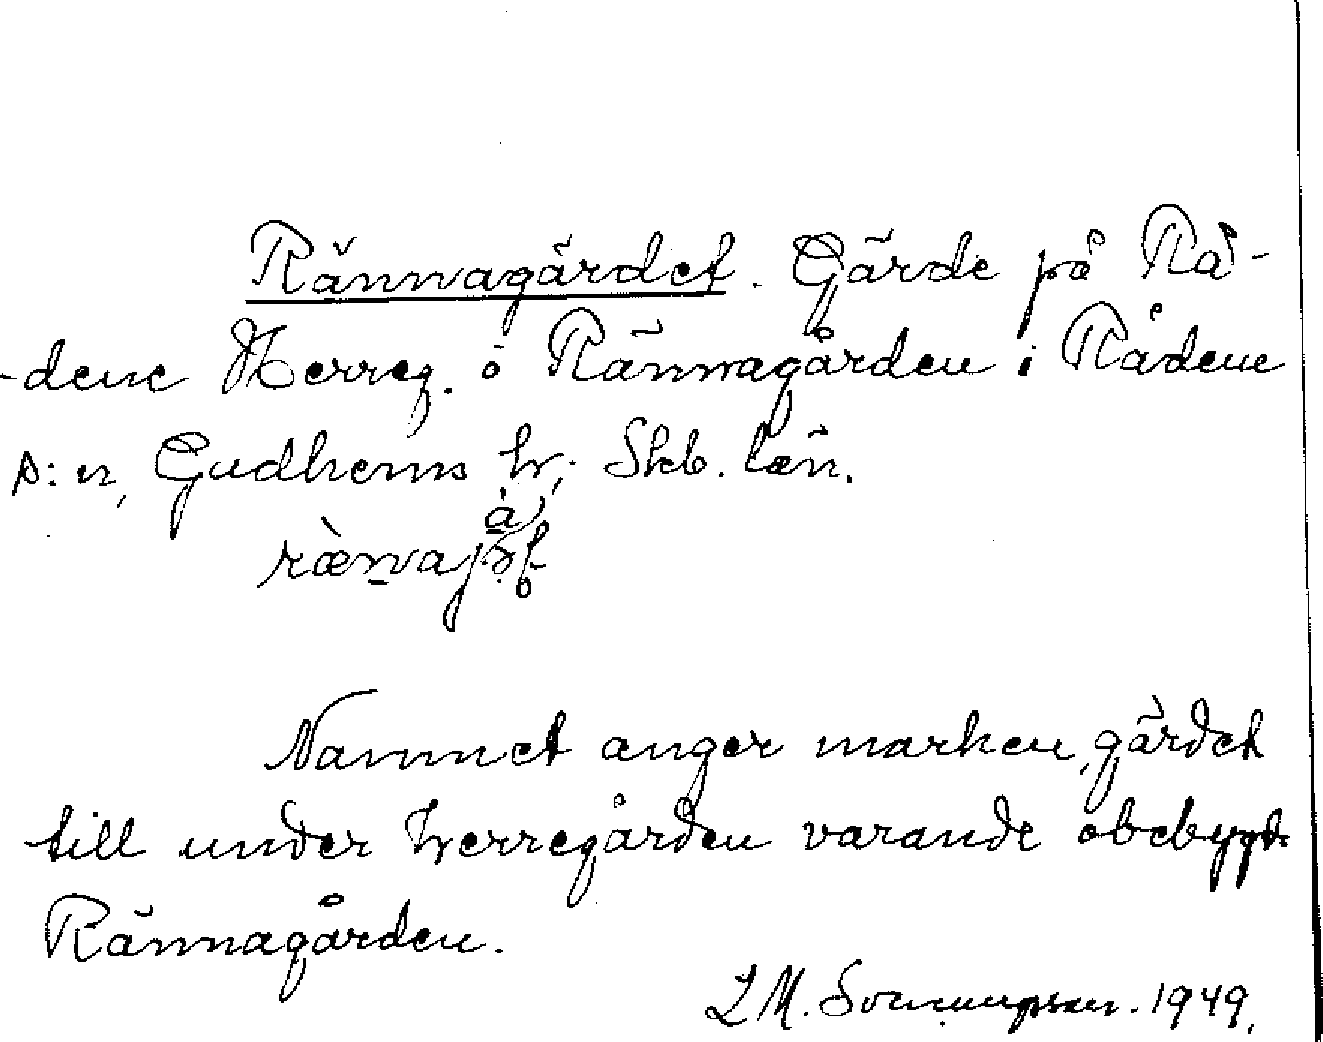 Rännagärdet. Gärde på Rå-
-dene Herreg. o Rännagården i Rådene
s:n, Gudhems hr; Skb. län.
Namnet anger marken, gärdet
till under herregården varande obebygt.
Rännagården.
1949.